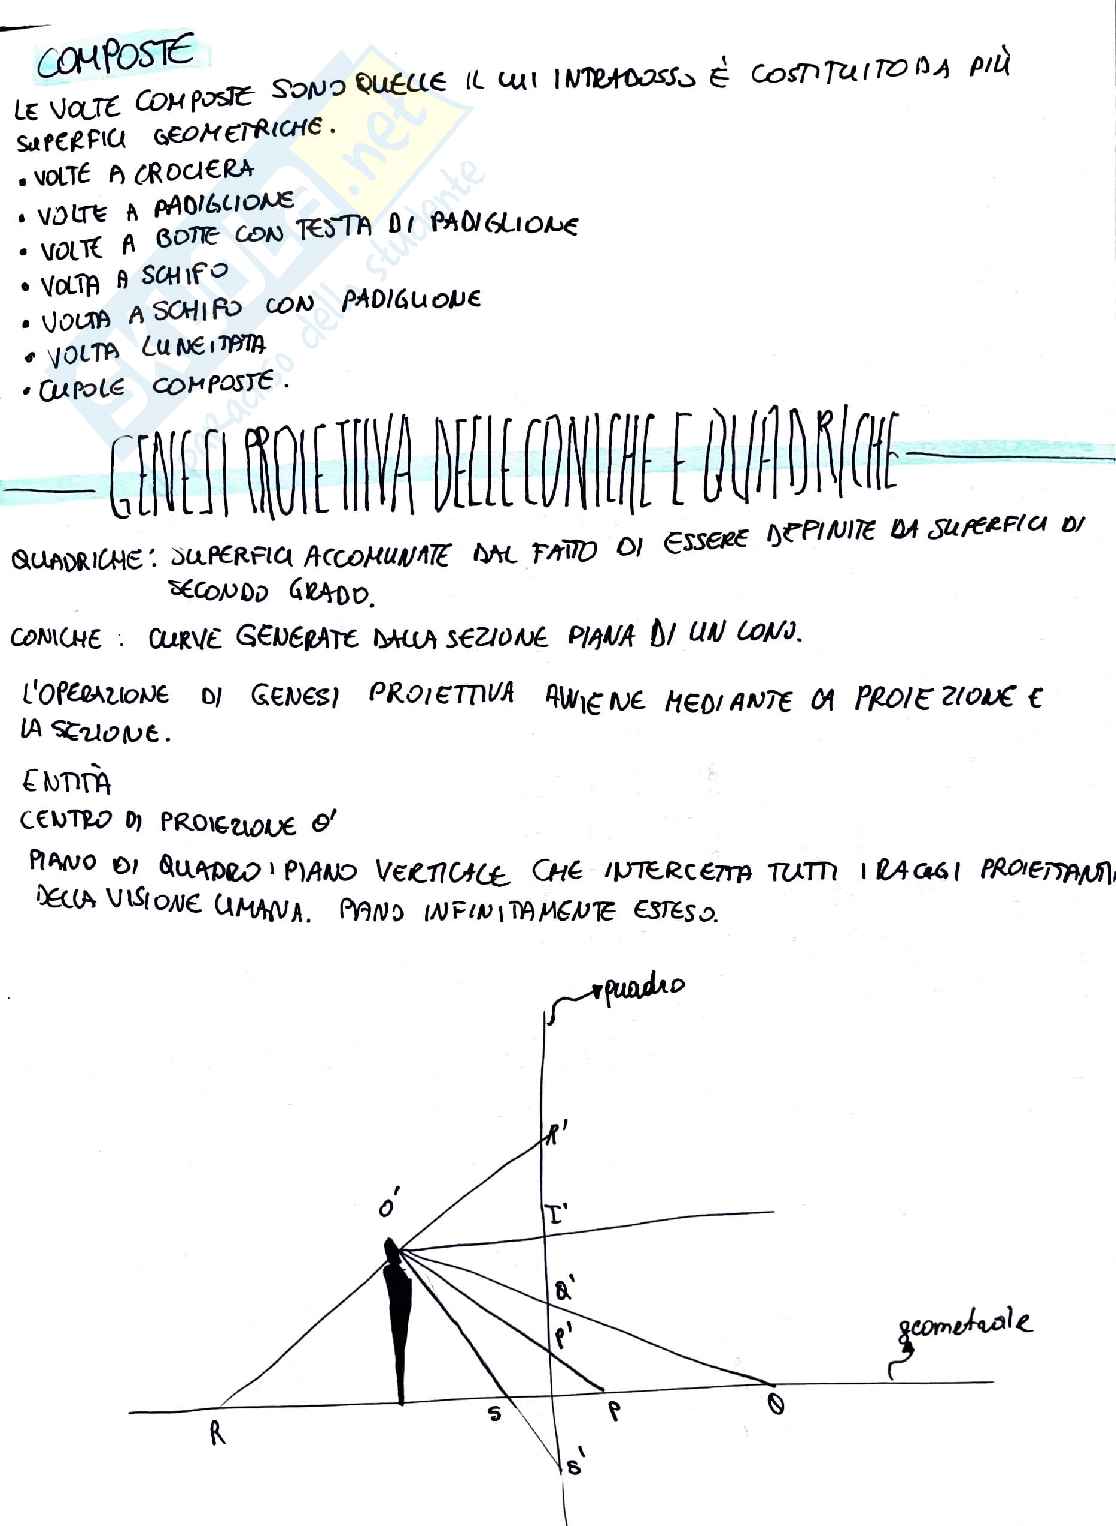 COMPOSTE
LE VOLTE COMPOSTE SONO QUELLE IL CUI INTRADOSSO È COSTITUITO DA PIÙ
SUPERFICI GEOMETRICHE.
• VOLTE A CROCIERA
• VOLTE A PADIGLIONE
• VOLTE A BOTTE CON TESTA DI PADIGLIONE
• VOLTA A SCHIFO
• VOLTA A SCHIFO CON PADIGLIONE
• VOLTA LUNETTATA
• CUPOLE COMPOSTE.
SKUOLA.net
paradiso dello studente
GENESI PROIETTIVA DELLE CONICHE E QUADRICHE
QUADRICHE: SUPERFICI ACCOMUNATE DAL FATTO DI ESSERE DEFINITE DA SUPERFICI DI
SECONDO GRADO.
CONICHE: CURVE GENERATE DALLA SEZIONE PIANA DI UN CONO.
L'OPERAZIONE DI GENESI PROIETTIVA AVVIENE MEDIANTE LA PROIEZIONE E
LA SEZIONE.
ENTITÀ
CENTRO DI PROIEZIONE O'
PIANO DI QUADRO: PIANO VERTICALE CHE INTERCETTA TUTTI I RAGGI PROIETTANTI
DELLA VISIONE UMANA. PIANO INFINITAMENTE ESTESO.
quadro
R'
O'
I'
Q'
P'
geometrale
R
S
P
Q
S'